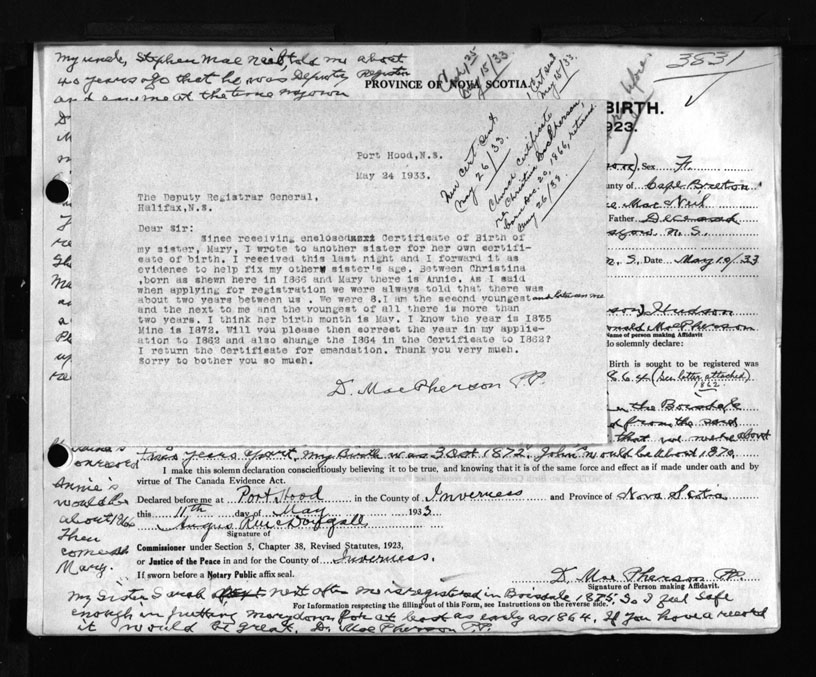 My uncle, Stephen MacNeil, told me about
40 years ago that he was Deputy Registrar
and came at the time my own
PROVINCE OF NOVA SCOTIA
May 15/33
1 Cert and
May 15/33
before
3831
New cert. sent.
May 26/33.
Church certificate
re Christina MacPherson,
born Dec. 20, 1866, returned.
May 26/33.
BIRTH.
1923.
Port Hood, N.S.
May 24 1933.
The Deputy Registrar General,
Halifax, N.S.
Dear Sir:
Since receiving enclosed Certificate of Birth of
my sister, Mary, I wrote to another sister for her own certifi-
cate of birth. I received this last night and I forward it as
evidence to help fix my other sister's age. Between Christina
,born as shewn here in 1866 and Mary there is Annie. As I said
when applying for registration we were always told that there was
about two years between us . We were 8.I am the second youngest and between me
and the next to me and the youngest of all there is more than
two years. I think her birth month is May. I know the year is 1875
Mine is 1872. Will you please then correct the year in my applic-
ation to 1862 and also change the 1864 in the Certificate to 1862?
I return the Certificate for emendation. Thank you very much.
Sorry to bother you so much.
D. MacPherson P.P.
Sex F.
County of Cape Breton
MacNeil
Father Deceased
N.S.
N.S. Date May 10/33
Hudson
Donald MacPherson
Name of person making Affidavit
do solemnly declare:
Birth is sought to be registered was
1864 (see letter attached)
1862
the Boisdale
from the said
that we were about
two years apart. My Birth was 3 Oct 1872. John's would be about 1870.
I make this solemn declaration conscientiously believing it to be true, and knowing that it is of the same force and effect as if made under oath and by
virtue of The Canada Evidence Act.
Annie's
would be
about 1866
Then
comes
Mary.
Declared before me at Port Hood in the County of Inverness and Province of Nova Scotia
this 11th day of May 1933
Angus MacDougall
Signature of
Commissioner under Section 5, Chapter 38, Revised Statutes, 1923,
or Justice of the Peace in and for the County of Inverness.
If sworn before a Notary Public affix seal.
D. MacPherson P.P.
Signature of Person making Affidavit.
My Sister Sarah next after me is registered in Boisdale 1875. So I feel safe
For Information respecting the filling out of this Form, see Instructions on the reverse side.
enough in putting Mary down for at least as early as 1864. If you have a record
it would be great. D. MacPherson P.P.